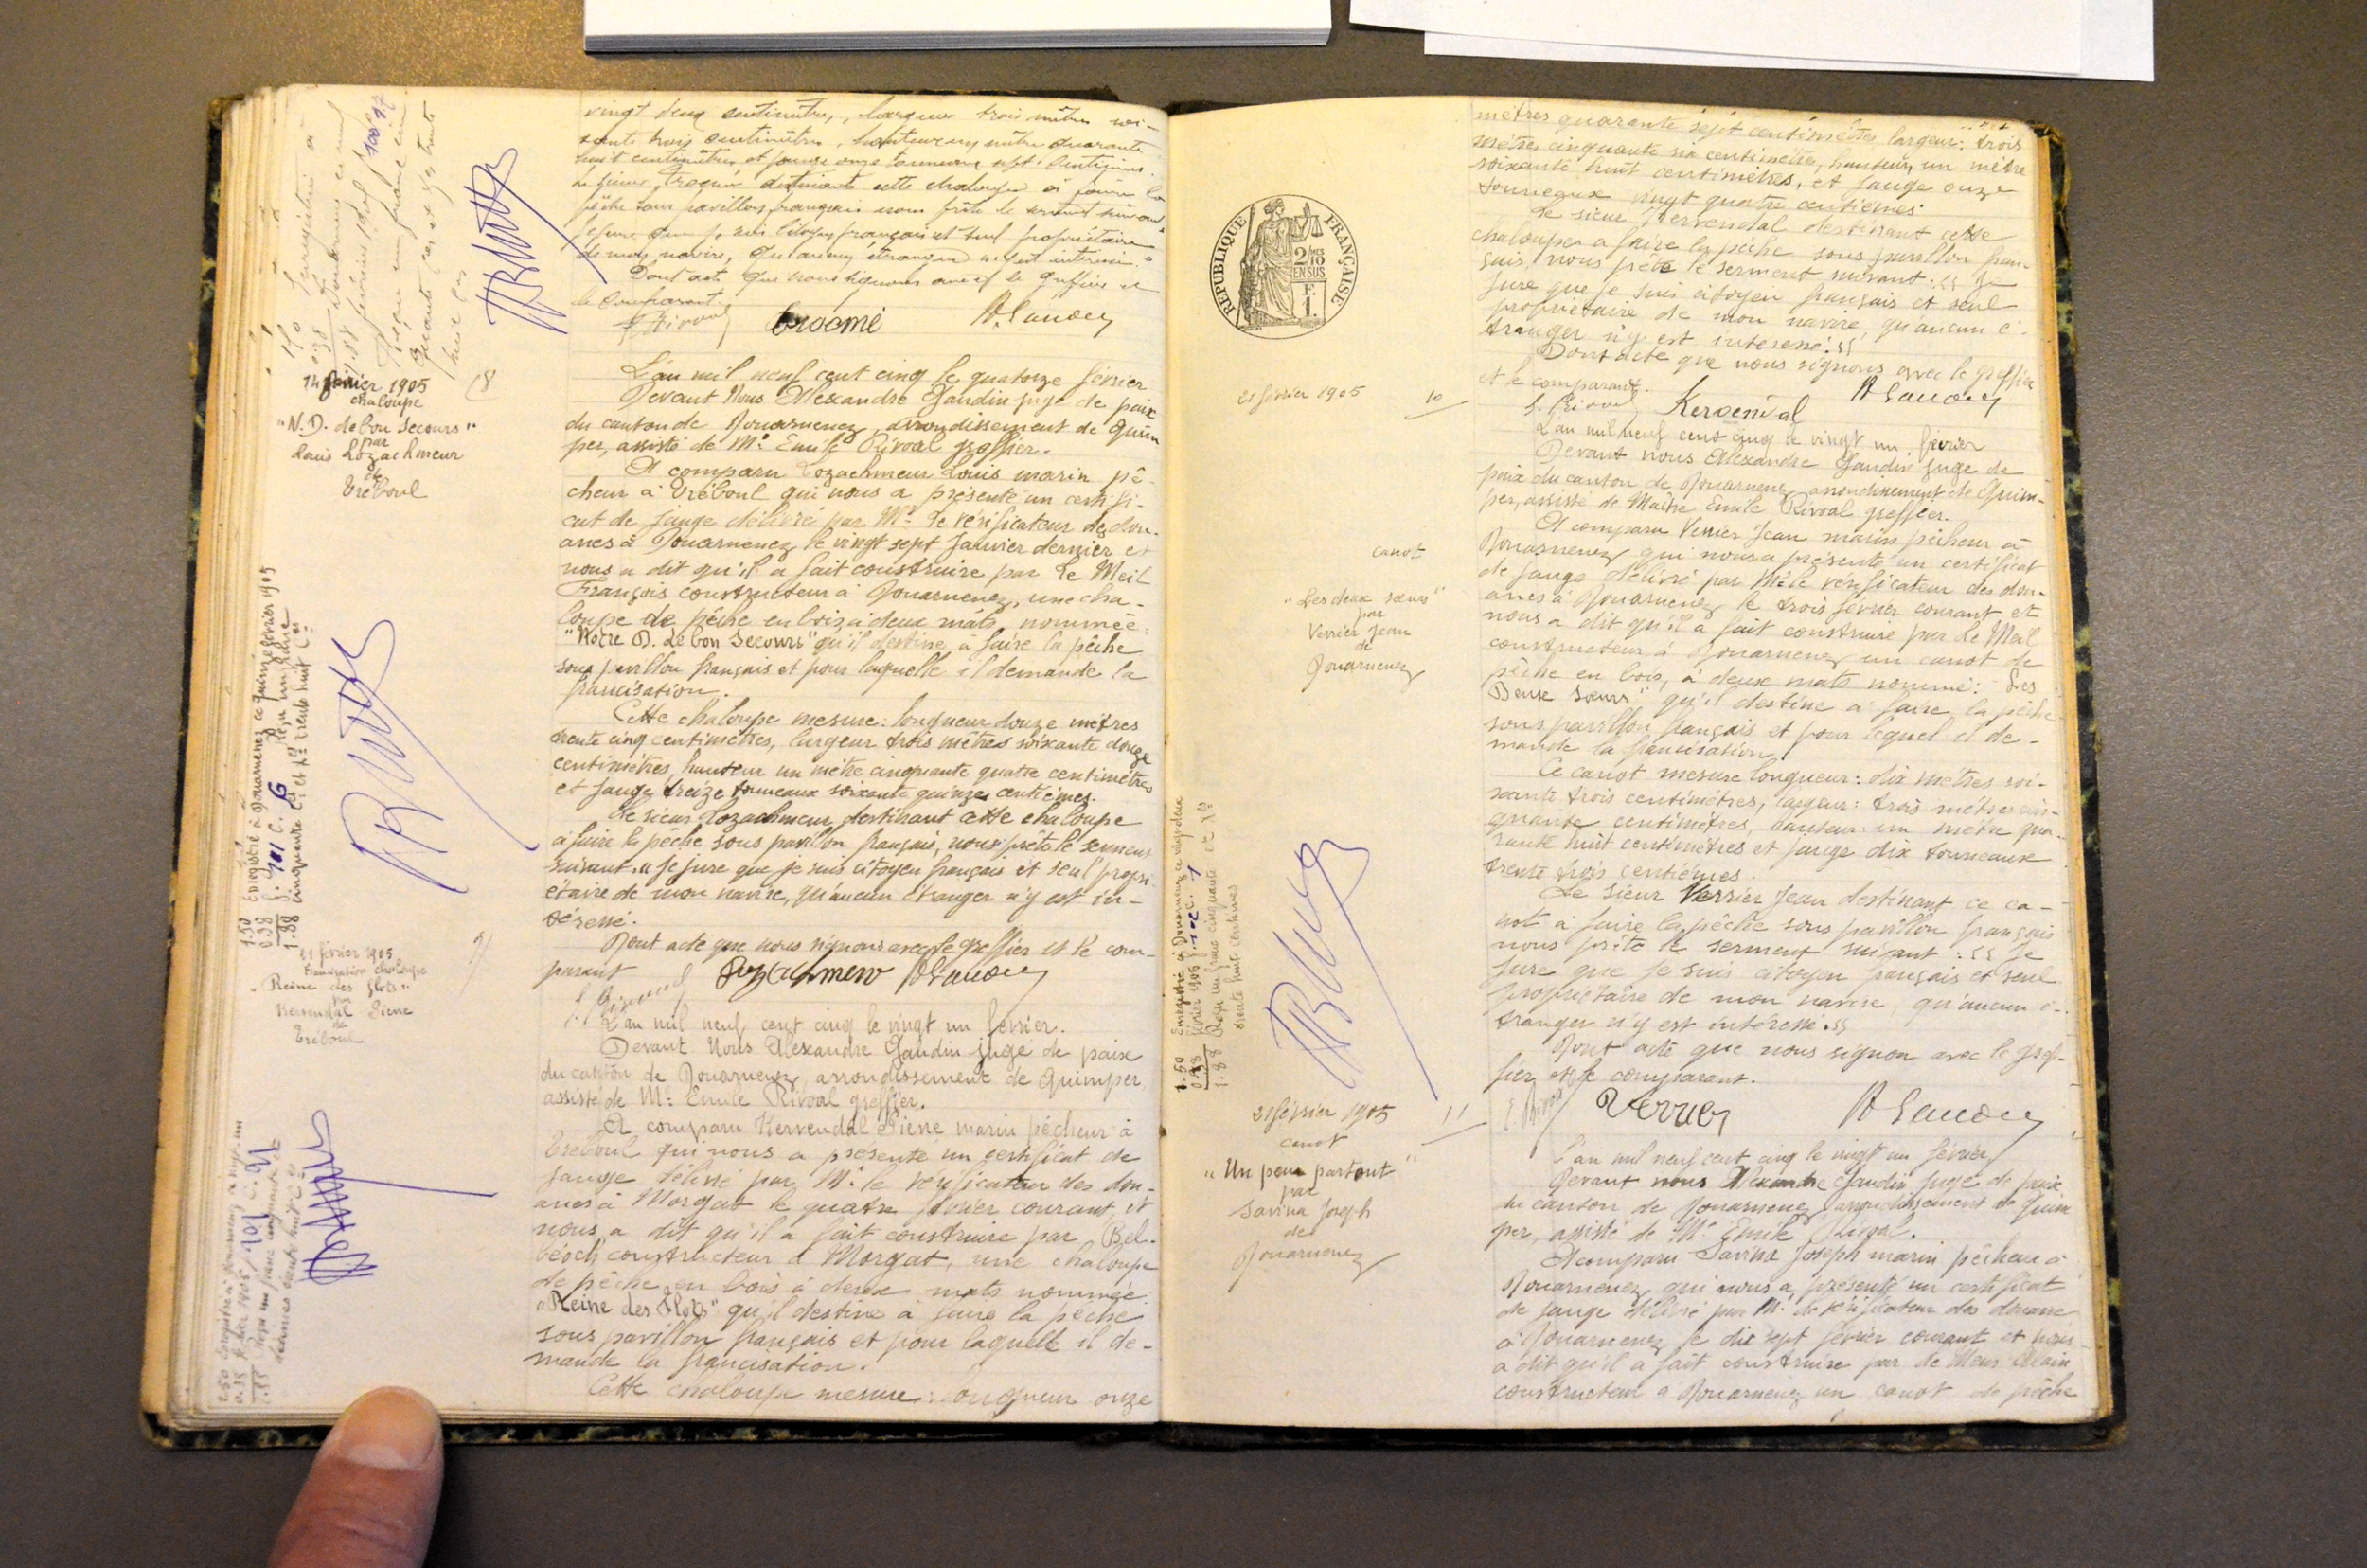 vingt deux centimètres, largeur trois mètres soi-
xante trois centimètres, hauteur un mètre quarante
huit centimètres et jauge onze tonneaux sept centièmes.
Le sieur destinant cette chaloupe à faire la
pêche sous pavillon français nous prête le serment suivant
je jure que je suis citoyen français et seul propriétaire
de mon navire, qu'aucun étranger n'y est intéressé."
Dont acte que nous signons avec le greffier et
le comparant.
E. Rivoal A. Gaudin
Enregistré à
14 février 1905
chaloupe
"N.D. de bon Secours"
par
Louis Lozachmeur
de
Tréboul
8
L'an mil neuf cent cinq le quatorze février
Devant Nous Alexandre Gaudin juge de paix
du canton de Douarnenez, arrondissement de Quim
per, assisté de Me Emile Rivoal greffier.
A comparu Lozachmeur Louis marin pê-
cheur à Tréboul qui nous a présenté un certifi-
cat de jauge délivré par Mr le vérificateur des dou-
anes à Douarnenez le vingt sept Janvier dernier et
nous a dit qu'il a fait construire par Le Meil
François constructeur à Douarnenez, une cha-
loupe de pêche en bois à deux mâts nommée:
"Notre D. de bon Secours" qu'il destine à faire la pêche
sous pavillon français et pour laquelle il demande la
francisation.
Cette chaloupe mesure: longueur douze mètres
trente cinq centimètres, largeur trois mètres soixante douze
centimètres, hauteur un mètre cinquante quatre centimètres
et jauge treize tonneaux soixante quinze centièmes.
Le sieur Lozachmeur destinant cette chaloupe
à faire la pêche sous pavillon français, nous prête le serment
suivant "Je jure que je suis citoyen français et seul propri-
étaire de mon navire, qu'aucun étranger n'y est in-
téressé.
Dont acte que nous signons avec le greffier et le com-
parant
E. Rivoal Lozachmeur A Gaudin
1.50 Enregistré à Douarnenez ce quinze février 1905
0.38 f: 101 C. 6 Reçu un franc
1.88 cinquante Ces et Xes trente huit Ces
21 février 1905
Francisation chaloupe
"Reine des flots"
par
Kervendal Pierre
de
Tréboul
9
L'an mil neuf cent cinq le vingt un février.
Devant Nous Alexandre Gaudin juge de paix
du canton de Douarnenez, arrondissement de Quimper,
assisté de Me Emile Rivoal greffier.
A comparu Kervendal Pierre marin pêcheur à
Tréboul qui nous a présenté un certificat de
jauge délivré par Mr le vérificateur des dou-
anes à Morgat le quatre février courant, et
nous a dit qu'il a fait construire par Bel-
béoch constructeur à Morgat, une chaloupe
de pêche en bois à deux mats nommée:
"Reine des Flots" qu'il destine à faire la pêche
sous pavillon français et pour laquelle il de-
mande la francisation.
Cette chaloupe mesure: longueur onze
RÉPUBLIQUE FRANÇAISE
2/10 EN SUS
F.
1.
mètres quarante sept centimètres largeur: trois
mètres cinquante six centimètres, hauteur, un mètre
soixante huit centimètres, et jauge onze
tonneaux vingt quatre centièmes.
Le sieur Kervendal destinant cette
chaloupe à faire la pêche sous pavillon fran-
çais, nous prête le serment suivant: "Je
jure que je suis citoyen français et seul
propriétaire de mon navire, qu'aucun é-
tranger n'y est intéressé."
Dont acte que nous signons avec le greffier
et le comparant.
E. Rivoal A Gaudin
21 février 1905
10
canot
"Les deux sœurs"
par
Verrier Jean
de
Douarnenez
L'an mil neuf cent cinq le vingt un février
Devant nous Alexandre Gaudin juge de
paix du canton de Douarnenez arrondissement de Quim-
per, assisté de Maître Emile Rivoal greffier.
A comparu Verrier Jean marin pêcheur à
Douarnenez qui nous a présenté un certificat
de jauge délivré par Mr le vérificateur des dou-
anes à Douarnenez le trois février courant et
nous a dit qu'il a fait construire par Le Meil
constructeur à Douarnenez un canot de
pêche en bois, à deux mats nommé: "Les
Deux Sœurs" qu'il destine à faire la pêche
sous pavillon français et pour lequel il de-
mande la francisation
Ce canot mesure longueur: dix mètres soi-
xante trois centimètres, largeur: trois mètres cin-
quante centimètres, hauteur: un mètre qua-
rante huit centimètres et jauge dix tonneaux
trente trois centièmes.
Le sieur Verrier Jean destinant ce ca-
not à faire la pêche sous pavillon français
nous prête le serment suivant: "Je
jure que je suis citoyen français et seul
propriétaire de mon navire, qu'aucun é-
tranger n'y est intéressé."
Dont acte que nous signon avec le gref-
fier et le comparant.
E. Rivoal Verrier A Gaudin
1.50 Enregistré à Douarnenez ce vingt deux
0.38 février 1905 C. 7
1.88 Reçu un franc cinquante et Xes
trente huit centimes
21 février 1905
canot
"Un peu partout"
par
Savina Joseph
de
Douarnenez
11
L'an mil neuf cent cinq le vingt un février
Devant nous Alexandre Gaudin juge de paix
du canton de Douarnenez arrondissement de Quim
per, assisté de Me Emile Rivoal.
A comparu Savina Joseph marin pêcheur à
Douarnenez qui nous a présenté un certificat
de jauge délivré par Mr le vérificateur des douane
à Douarnenez le dix sept février courant et nous
a dit qu'il a fait construire par Alain
constructeur à Douarnenez un canot de pêche